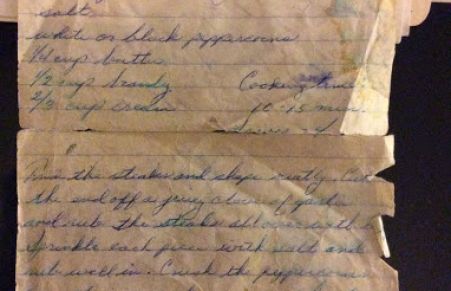 salt
white or black peppercorns
1/4 cup butter
1/2 cup brandy Cooking time
2/3 cup cream 10-15 min.
Serves
the steaks and shape neatly. Cut
the end off a juicy clove of garlic
and rub the steaks all over with it
Sprinkle each piece with salt and
rub well in. Crush the peppercorns